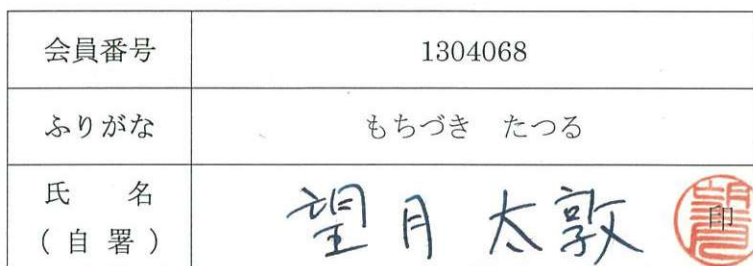 会員番号 1304068
ふりがな もちづき たつる
氏 名
(自署) 望月 太敦 印